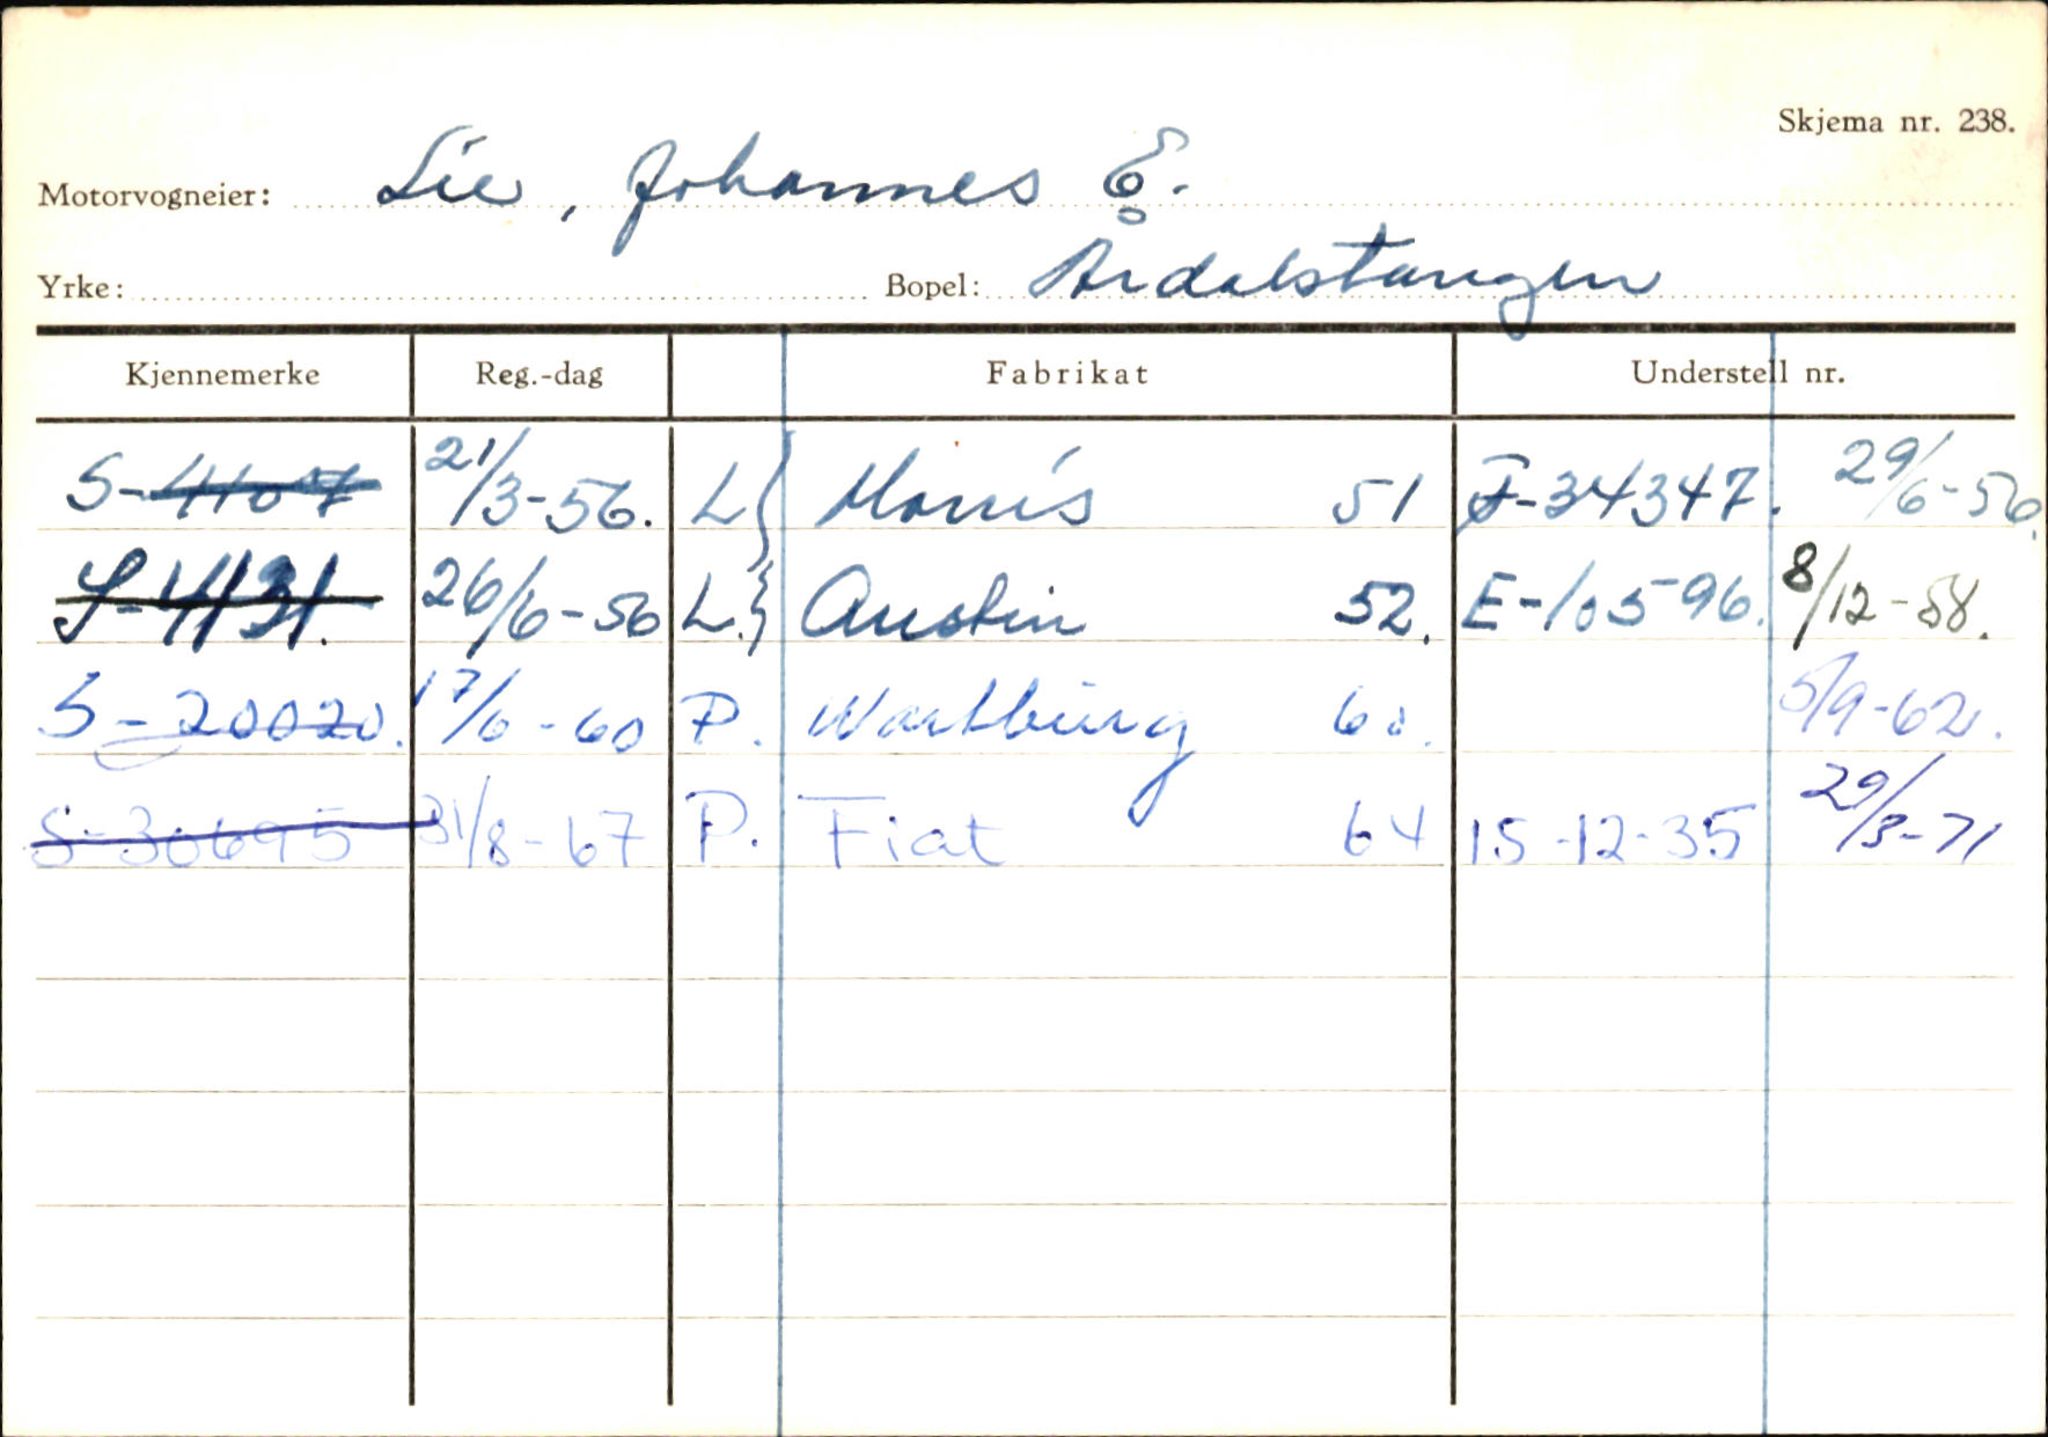 Skjema nr. 238.
Motorvogneier: Lie, Johannes E.
Yrke: Bopel: Årdalstangen
Kjennemerke Reg.-dag Fabrikat Understell nr.
S-4107 21/3-56. L Morris 51 F-34347. 29/6-56.
S-4131. 26/6-56 L. Austin 52. E-10596. 8/12-58.
S-20020. 17/6-60 P. Wartburg 60. 5/9-62.
S-30695 31/8-67 P. Fiat 64 15-12-35 29/3-71